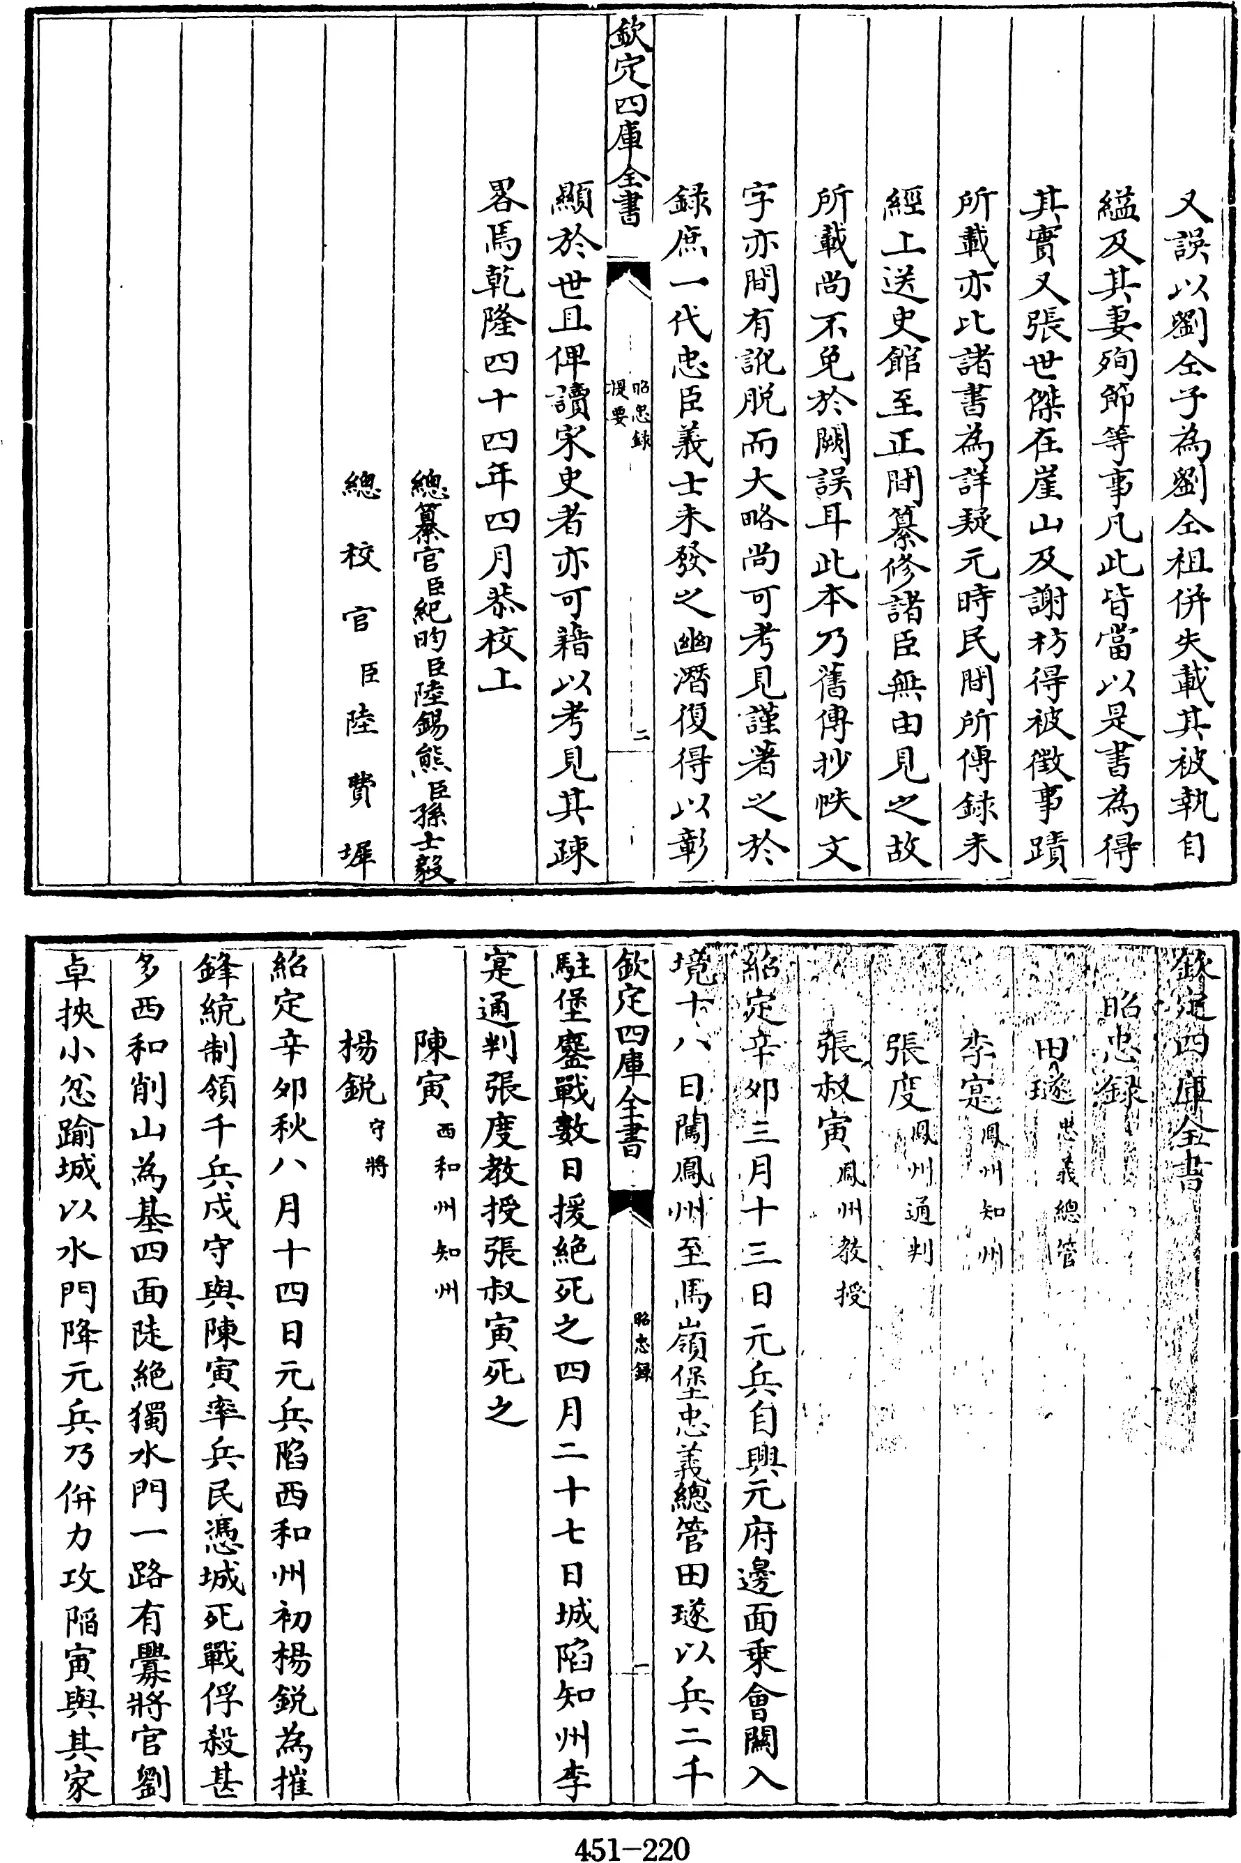 又誤以劉仝子為劉仝祖併失載其被執自
縊及其妻殉節等事凡此皆當以是書為得
其實又張世傑在崖山及謝枋得被徴事蹟
所載亦比諸書為詳疑元時民間所傳録未
經上送史館至正間纂修諸臣無由見之故
所載尚不免於闕誤耳此本乃舊傳抄帙文
字亦間有訛脱而大略尚可考見謹著之於
録庶一代忠臣義士未發之幽潛復得以彰
欽定四庫全書
昭忠録
提要
二
顯於世且俾讀宋史者亦可藉以考見其疎
畧焉乾隆四十四年四月恭校上
總纂官臣紀昀臣陸錫熊臣孫士毅
總校官臣陸費墀
欽定四庫全書
昭忠録
田璲忠義總管
李寔鳳州知州
張度鳳州通判
張叔寅鳳州教授
紹定辛夘三月十三日元兵自興元府邊面乗會闗入
境十八日闖鳳州至馬嶺堡忠義總管田璲以兵二千
欽定四庫全書
昭忠録
一
駐堡鏖戰數日援絶死之四月二十七日城陷知州李
寔通判張度教授張叔寅死之
陳寅西和州知州
楊鋭守將
紹定辛夘秋八月十四日元兵陷西和州初楊鋭為摧
鋒統制領千兵戍守與陳寅率兵民憑城死戰俘殺甚
多西和削山為基四面陡絶獨水門一路有釁將官劉
卓挾小忿踰城以水門降元兵乃併力攻陷寅與其家
451-220